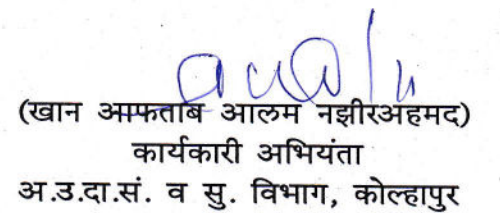 (खान आफताब आलम नझीरअहमद)
कार्यकारी अभियंता
अ.उ.दा.सं. व सु. विभाग, कोल्हापुर